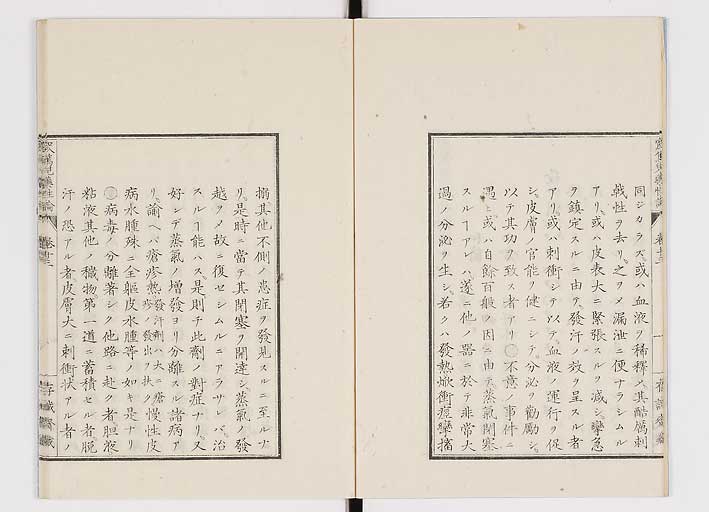 同シカラズ、或ハ血液ヲ稀釋メ、其酷厲刺
戟性ヲ去リ、之ヲメ漏泄ニ便ナラシムル
アリ、或ハ皮表大ニ緊張スルヲ減シ、攣急
ヲ鎮定スルニ由テ、發汗ノ效ヲ呈スル者
アリ、或ハ刺衝シテ以テ、血液ノ運行ヲ促
シ、皮膚ノ官能ヲ健ニシテ、分泌ヲ勸勵シ、
以テ其功ヲ致ス者アリ○不意ノ事件ニ
遇ヒ、或ハ自餘百般ノ因ニ由テ、蒸氣閉塞
スルヿアレハ、遂ニ他ノ器ニ於テ非常大
過ノ分泌ヲ生シ、若クハ發熱焮衝痙攣搐
搦其他不測ノ患症ヲ發見スルニ至ルナ
リ、是時ニ當テ其閉塞ヲ開達シ、蒸氣ノ發
越ヲメ故ニ復セシムルニアラサレバ、治
スルヿ能ハス、是則チ此劑ノ對症ナリ、又
好シテ蒸氣ノ增發ヨリ分離スル諸病ア
リ、諭ヘバ瘡疹熱發汗劑ハ大ニ瘡疹ノ發出ヲ扶ク慢性皮
病水腫殊ニ全軀皮水腫等ノ如キ是ナリ
○病毒ノ分離著シク他路ニ赴ク者膽液
粘液其他ノ穢物第一道ニ蓄積セル者脫
汗ノ恐アル者皮膚大ニ刺衝狀アル者ノ